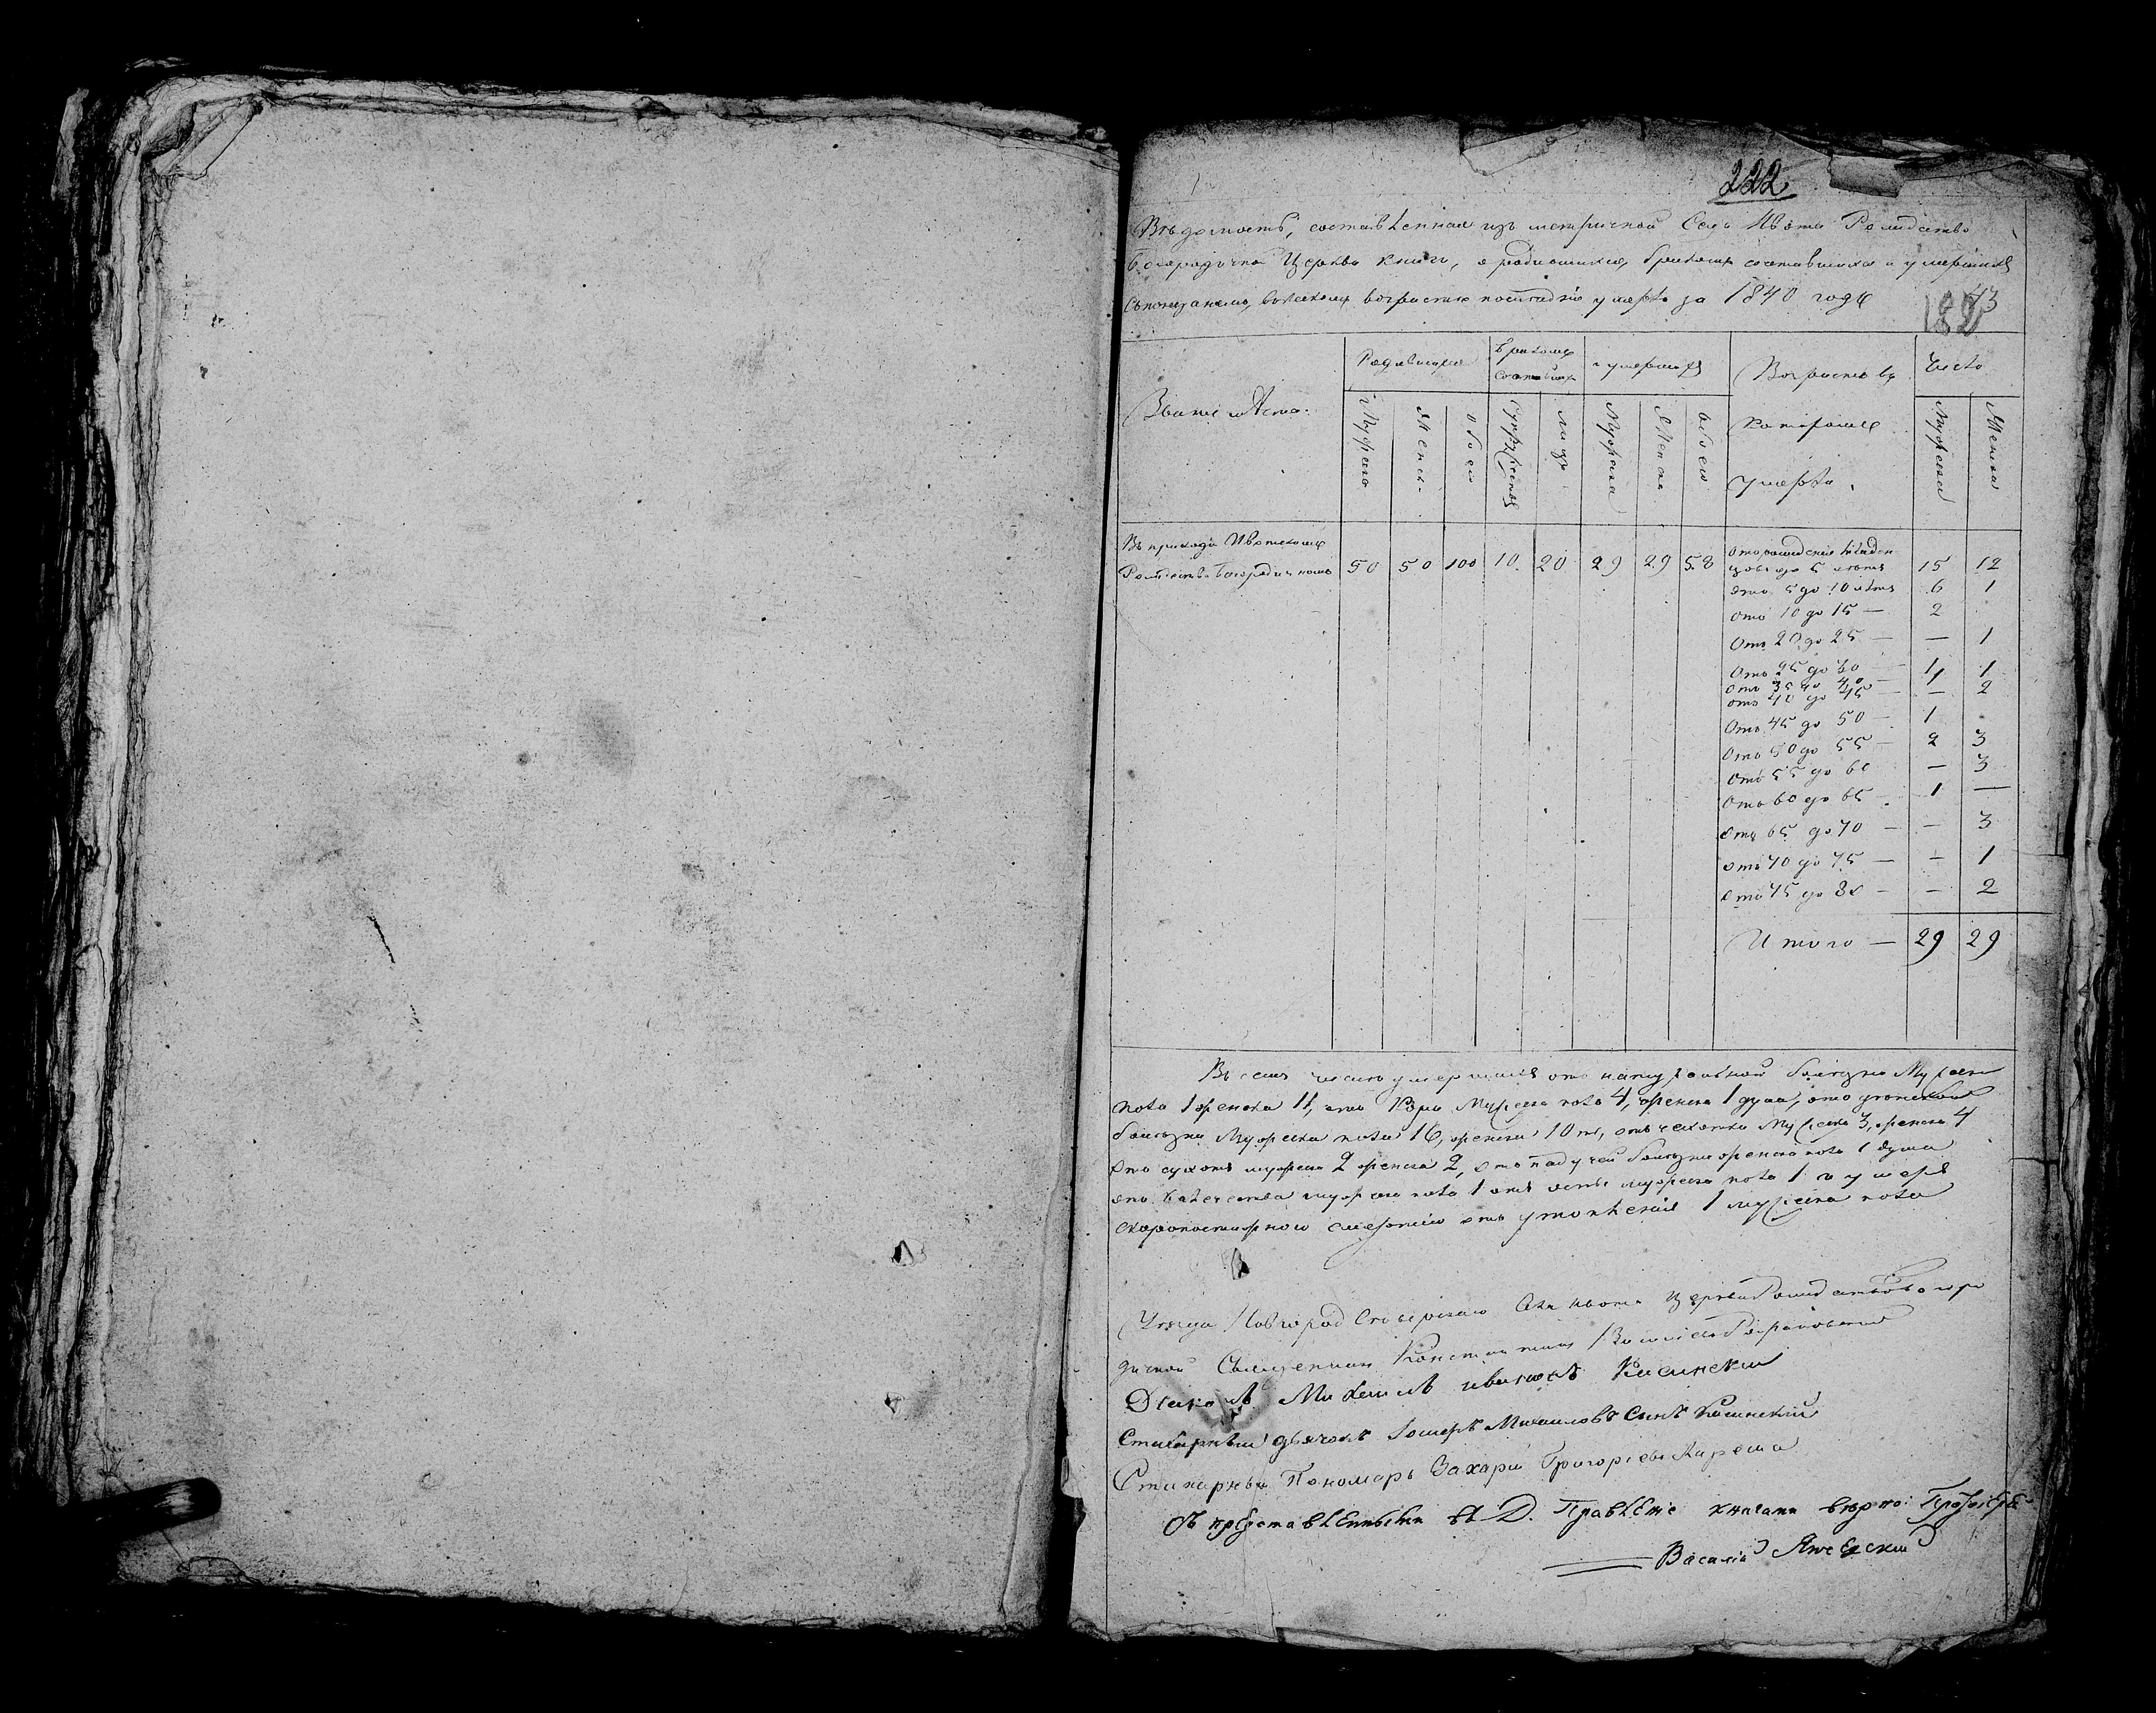 222
Вѣдомость, составленная изъ метричной Села Ивота Рождество
Богородичной Церкви книги, о родившихся, бракомъ составшихся и умершихъ
съ показаніемъ, въ какомъ возрастѣ послѣдніе умерли за 1840 годъ
Званіе мѣста.
Родившихся
бракомъ
умершихъ
Возрастъ въ
которомъ
умерли.
Число
Мужеска
Женска
обоего
Супружествъ
лицъ
Мужеска
Женска
обоего
Мужеска
Женска
Въ приходѣ Ивотскомъ
Рождество Богородичномъ 50 50 100 10. 20 29 29 58
Отъ рожденія младен
цовъ до 5 лѣтъ 15 12
Отъ 5 до 10 лѣтъ 6 1
Отъ 10 до 15 — 2
Отъ 20 до 25 — — 1
Отъ 25 до 30 — 1 1
Отъ 35 до 40 — 1
Отъ 40 до 45 — — 2
Отъ 45 до 50 — 1
Отъ 50 до 55 — 2 3
Отъ 55 до 60 — 3
Отъ 60 до 65 — 1 —
Отъ 65 до 70 — — 3
Отъ 70 до 75 — — 1
Отъ 75 до 80 — — 2
Итого — 29 29
Въ семъ числѣ умершихъ отъ натуральной болѣзни Мужеска
пола 1 женска 11, отъ Кори Мужеска пола 4, женска 1 душа, отъ
болѣзни Мужеска пола 16, женска 10ть, отъ чахотки Мужеска 3, женска 4
Отъ сухотъ мужеска 2 женска 2, отъ падучей болѣзни женска пола 1 душа
отъ калечества мужеска пола 1 отъ оспы мужеска пола 1 и умеръ
скоропостижною смертію отъ утопленія 1 мужеска пола
Уѣзда Новгородсѣверскаго Села Ивота Церкви Рождествобогоро
дичной Священникъ Константинъ
Діаконъ Михаилъ Ивановъ Косинскій
Стихарный дьячокъ Михаиловъ Сынъ Косинскій
Стихарный Пономарь Захарій Григорьевъ
Съ представленными въ Д. Правленіе книгами вѣрно:
Василій